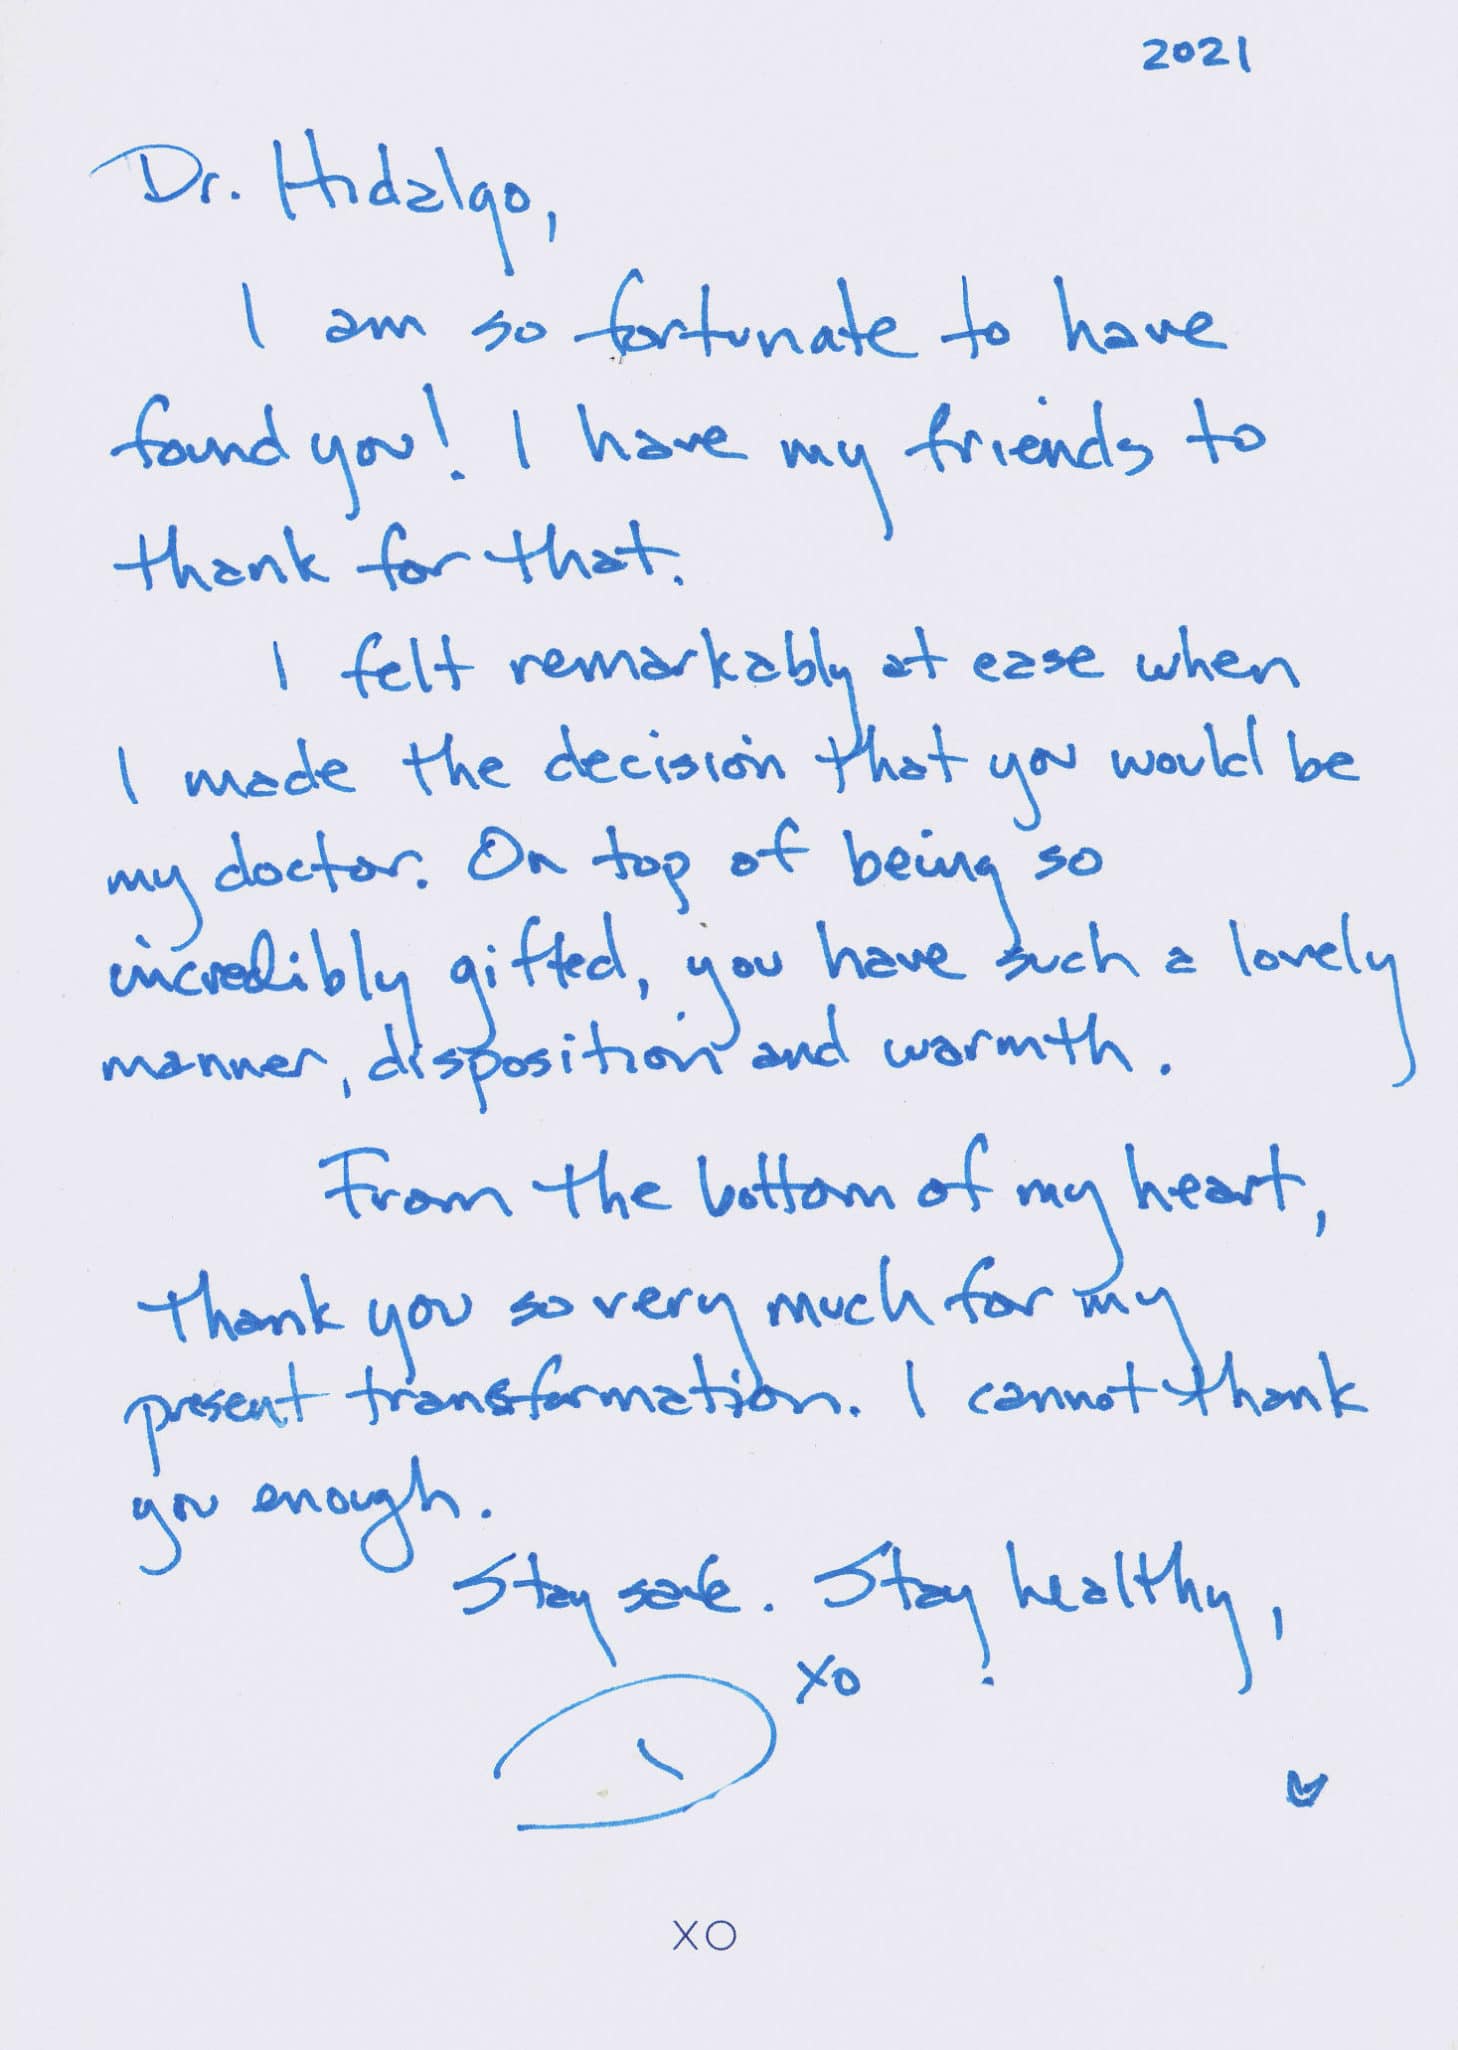 2021
Dr. Hidalgo,
I am so fortunate to have
found you! I have my friends to
thank for that.
I felt remarkably at ease when
I made the decision that you would be
my doctor. On top of being so
incredibly gifted, you have such a lovely
manner, disposition and warmth.
From the bottom of my heart,
thank you so very much for my
present transformation. I cannot thank
you enough.
Stay safe. Stay healthy,
XO
D
XO